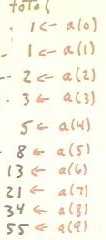 total
1 ← a(0)
1 ← a(1)
2 ← a(2)
3 ← a(3)
5 ← a(4)
8 ← a(5)
13 ← a(6)
21 ← a(7)
34 ← a(8)
55 ← a(9)